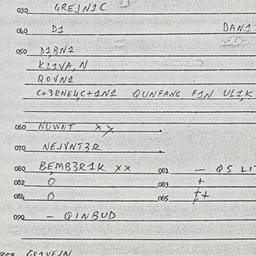 030 GREJN2C
040 D1 DAN1
050 D2RN2
K22VA, N
ROVN2
C+3RNEUC+2N2 QUNFANG F2N UL2K
060 NUWNT XX
070 NEJVNT3R
080 BEMB3R1K XX 081 — QS LIT
082 0 083 +
084 0 085
090 — QINBUD
GR2VEJN